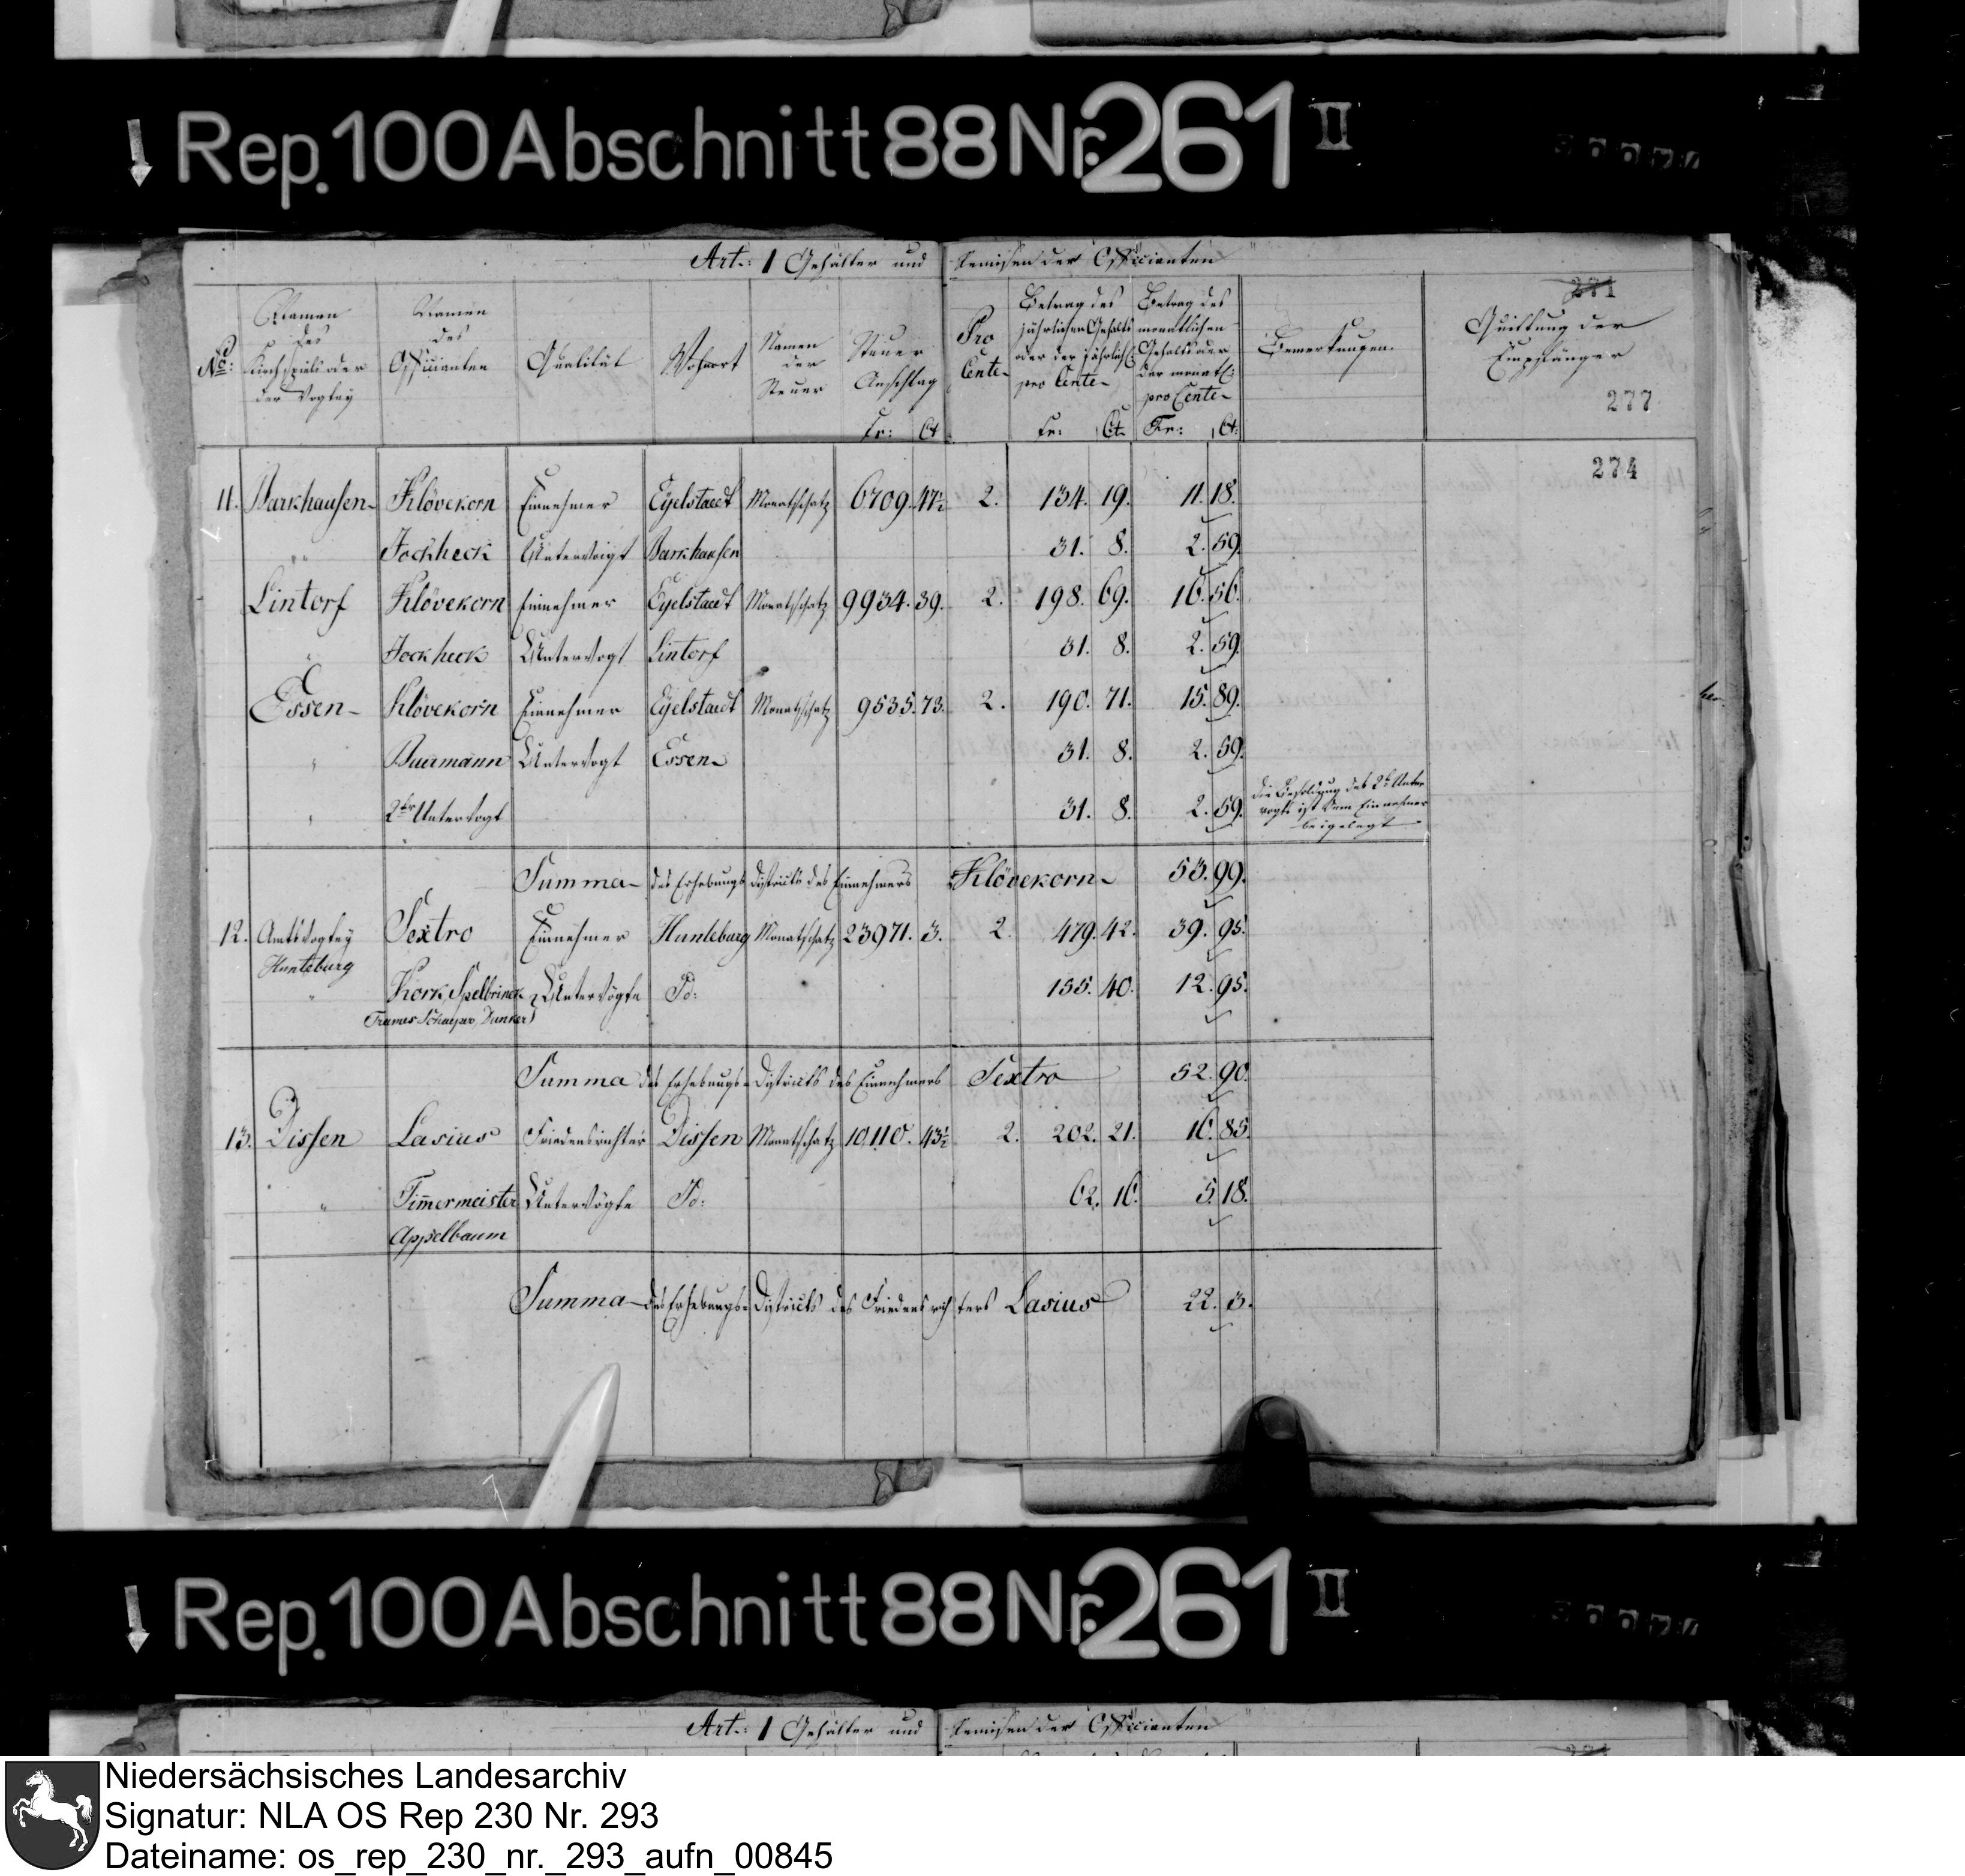 Rep. 100 Abschnitt 88 Nr. 261 II
Art: 1 Gehälter und Remisen der Officianten
No: Namen des Kirchspiels oder der Vogtey Namen des Officianten Qualität Wohnort Namen der Steuer Steuer Anschlag Fr: Ct Pro Cente Betrag des jährlichen Gehalts oder der jährlich: pro Cente Fr: Ct. Betrag des monatlichen Gehalts oder der monatl: pro Cente Fr: Ct: Bemerkungen. Quittung der Empfänger
271
277
274
11. Barkhausen Klövekorn Einnehmer Eyelstaedt Monatschatz 6709. 47½ 2. 134. 19. 11. 18.
" Jockheck Untervoigt Barkhausen 31. 8. 2. 59.
Lintorf Klövekorn Einnehmer Eyelstaedt Monatschatz 9934. 39. 2. 198. 69. 16. 56.
" Jockheck Untervogt Lintorf 31. 8. 2. 59.
Essen Klövekorn Einnehmer Eyelstaedt Monatschatz 9535. 73. 2. 190. 71. 15. 89.
" Buermann Untervogt Essen 31. 8. 2. 59.
" 2ter Untervogt 31. 8. 2. 59. Die Besoldung des 2t Unter
vogts ist dem Einnehmer
beigelegt
Summa des Erhebungs Districts des Einnehmers Klövekorn 53. 99.
12. Amtsvogtey Sextro Einnehmer Hunteburg Monatschatz 23971. 3. 2. 479. 42. 39. 95.
Hunteburg
" Kork, Spelbrinck Untervögte Do: 155. 40. 12. 95.
Dunker
Summa des Erhebungs-Districts des Einnehmers Sextro 52. 90.
13. Dissen Lasius Friedensrichter Dissen Monatschatz 10110. 43½ 2. 202. 21. 16. 85.
" Tim̄ermeister Untervögte Do: 62. 16. 5. 18.
Appelbaum
Summa des Erhebungs-Districts des Friedensrichters Lasius 22. 3.
Rep. 100 Abschnitt 88 Nr. 261 II
Art: 1 Gehälter und Remisen der Officianten
Niedersächsisches Landesarchiv
Signatur: NLA OS Rep 230 Nr. 293
Dateiname: os_rep_230_nr._293_aufn_00845